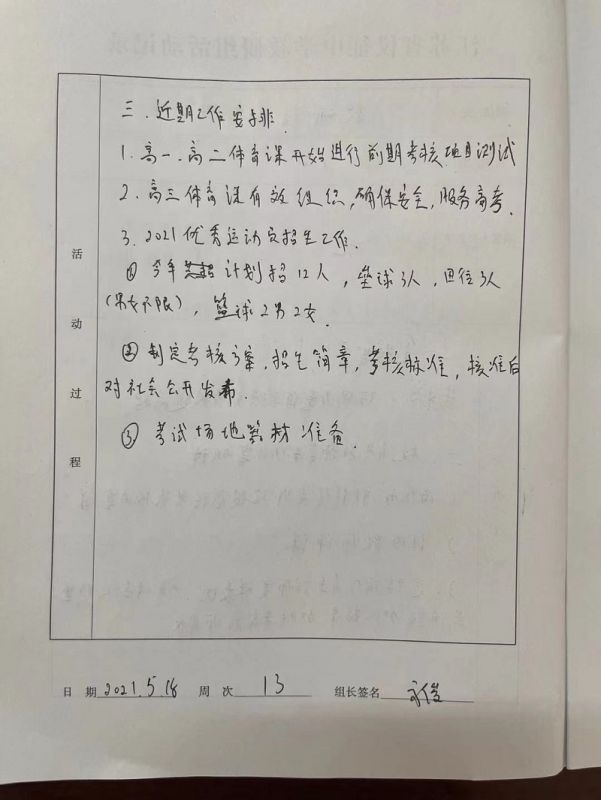 三、近期工作安排.
1. 高一、高二体育课开始进行前期考核项目测试
2. 高三体育课有效组织,确保安全,服务高考.
3. 2021优秀运动员招生工作.
① 今年 计划招12人, 垒球3人, 田径3人
(男女不限), 篮球2男2女.
② 制定考核方案,招生简章,考核标准,核准后
对社会公开发布.
③ 考试场地器材准备.
活动过程
日 期 2021.5.18 周 次 13 组长签名